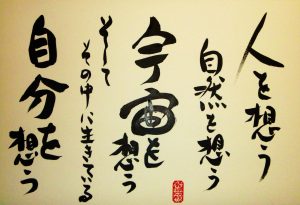 人を想う
自然を想う
宇宙を想う
そして
その中に生きている
自分を想う